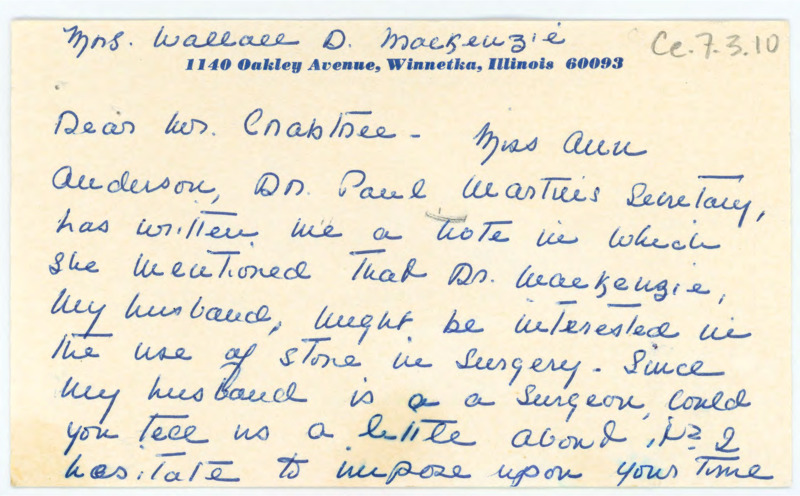 Mrs. Wallace D. MacKenzie
Cc. 7.3.10
1140 Oakley Avenue, Winnetka, Illinois 60093
Dear Mr. Crabtree - Miss Ann
Anderson, Dr. Paul Martin's Secretary,
has written me a note in which
she mentioned that Dr. MacKenzie,
my husband, might be interested in
the use of stone in surgery. Since
my husband is a a surgeon, could
you tell us a little about it? I
hesitate to impose upon your time